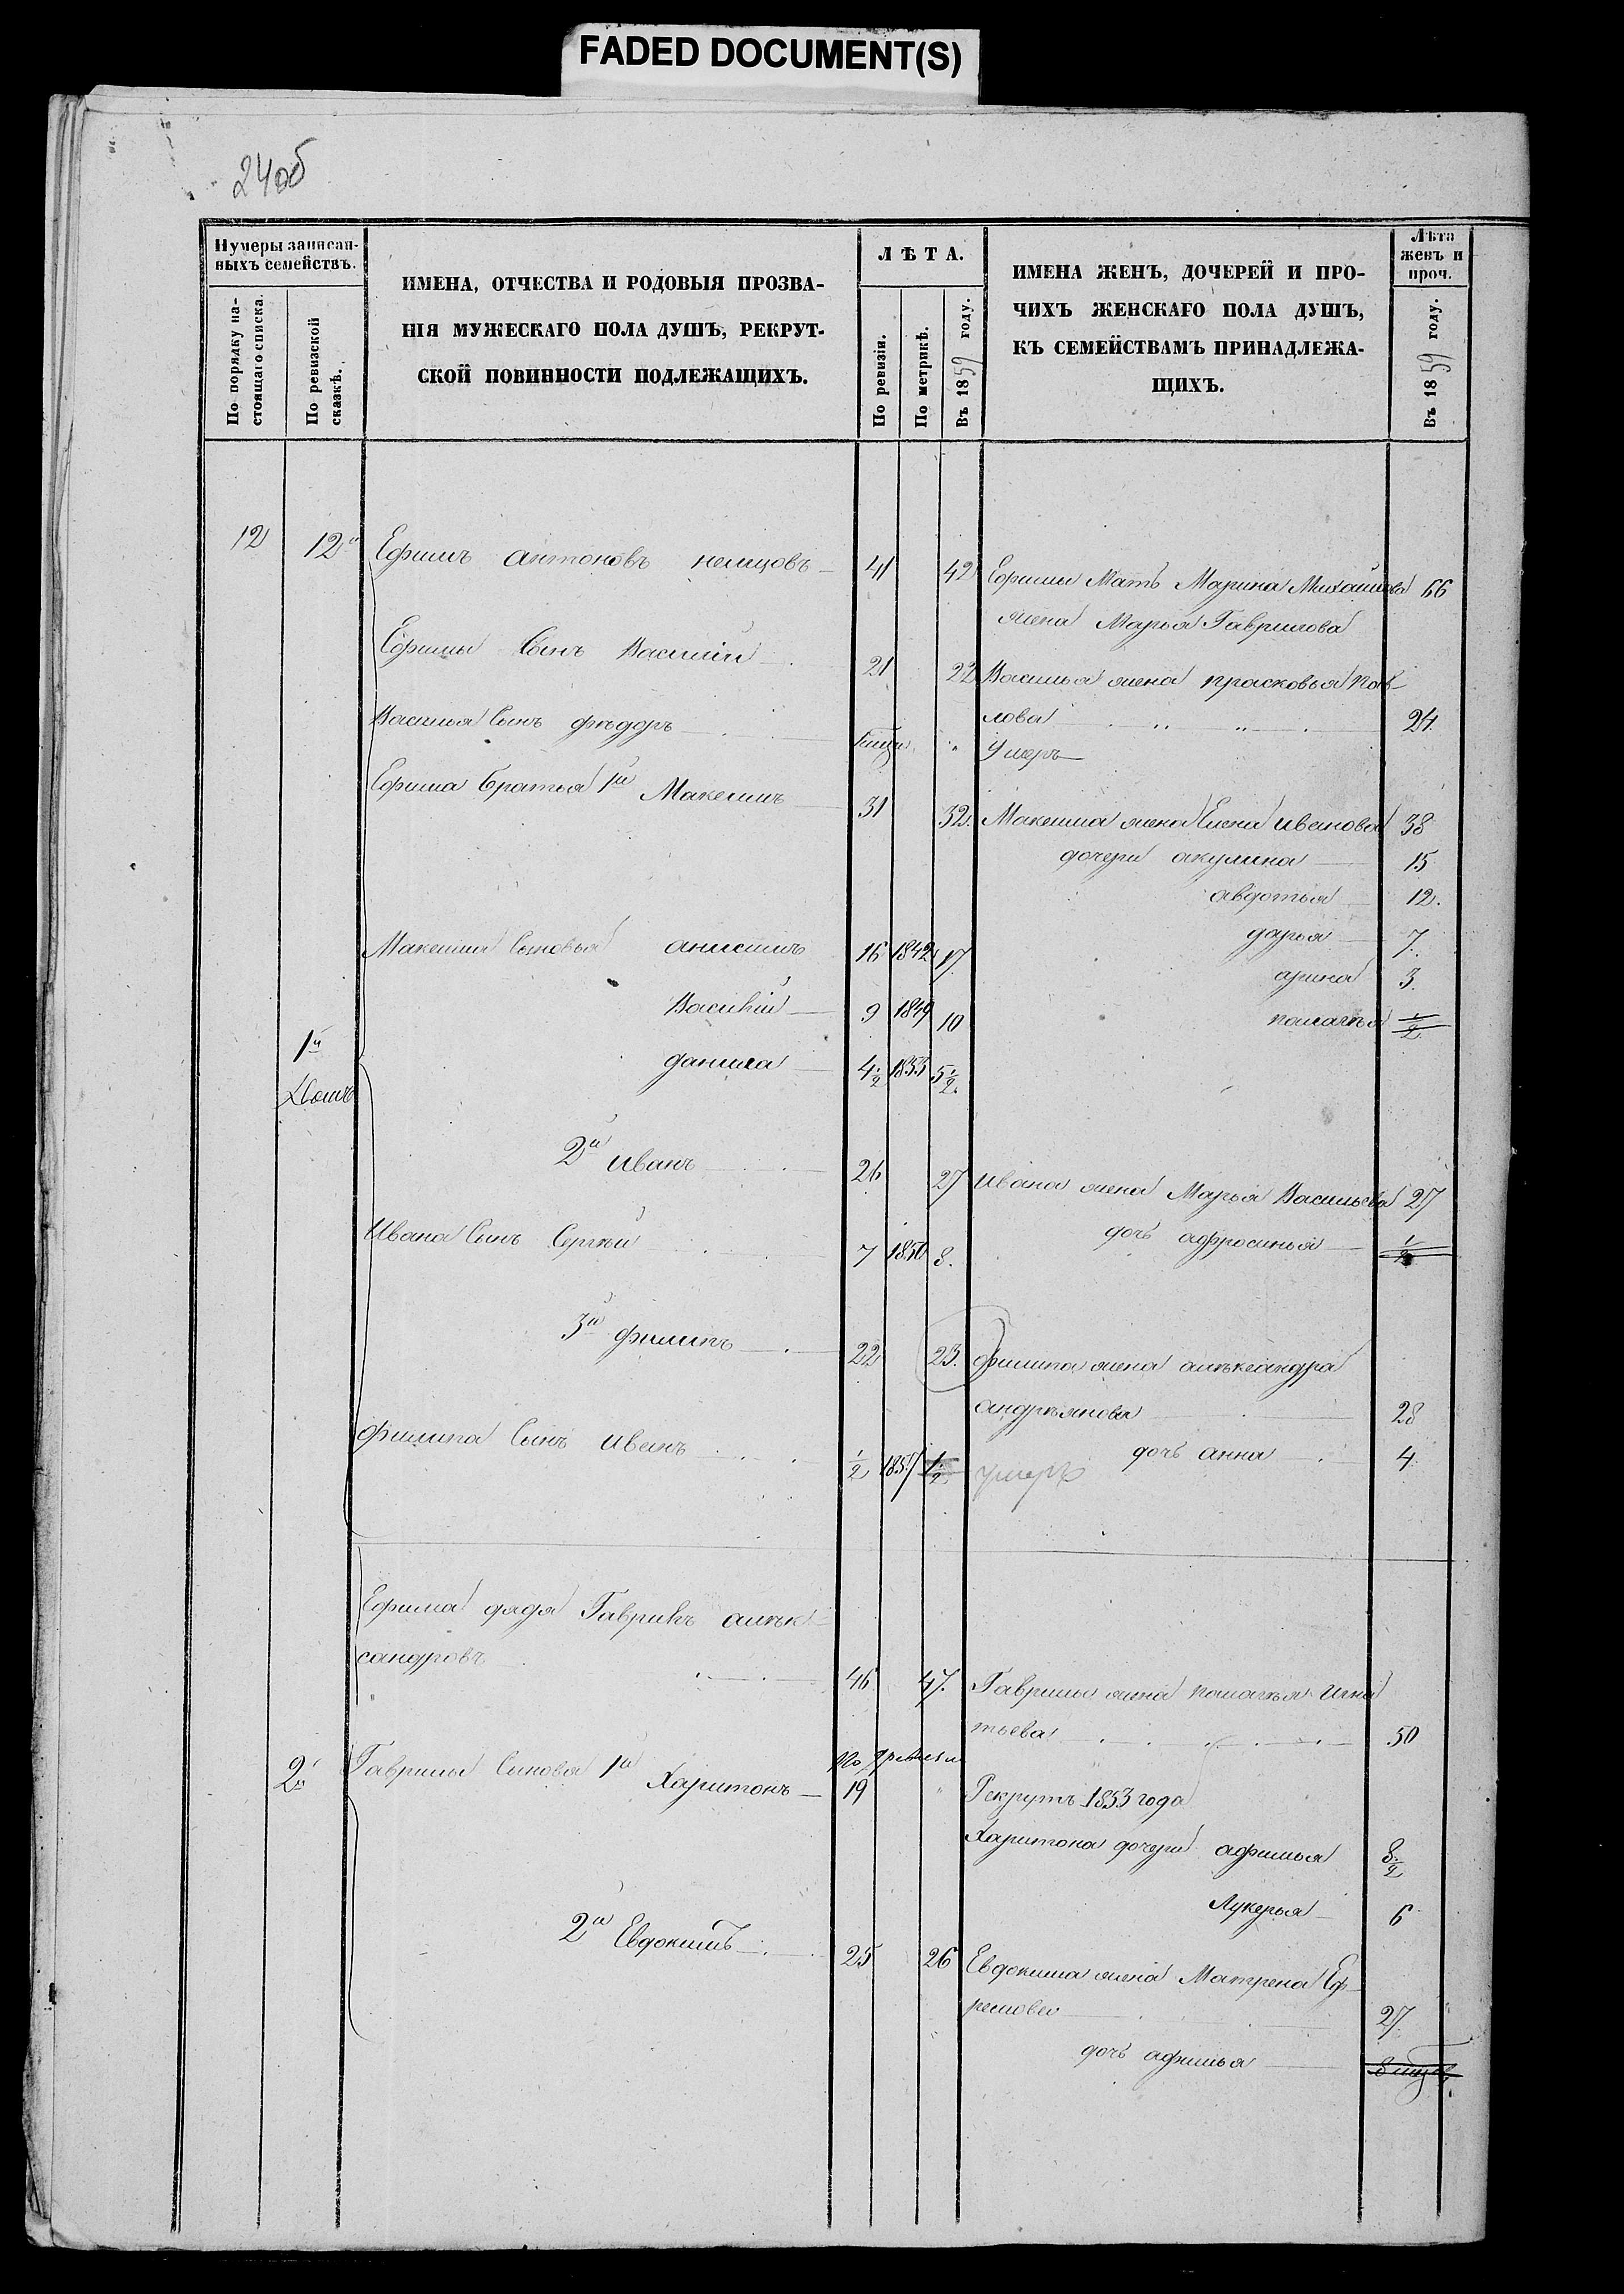 FADED DOCUMENT(S)
24об
Нумеры записан-
ныхъ семействъ.
По порядку на-
стоящаго списка.
По ревизской
сказкѣ.
ИМЕНА, ОТЧЕСТВА И РОДОВЫЯ ПРОЗВА-
НІЯ МУЖЕСКАГО ПОЛА ДУШЪ, РЕКРУТ-
СКОЙ ПОВИННОСТИ ПОДЛЕЖАЩИХЪ.
ЛѢТА.
По ревизіи.
По метрикѣ.
Въ 1859 году.
ИМЕНА ЖЕНЪ, ДОЧЕРЕЙ И ПРО-
ЧИХЪ ЖЕНСКАГО ПОЛА ДУШЪ,
КЪ СЕМЕЙСТВАМЪ ПРИНАДЛЕЖА-
ЩИХЪ.
Лѣта
женъ и
проч.
Въ 1859 году.
12 12 Ефимъ антоновъ немцовъ 41 42 Ефимы Мать Марина Михайлова 66
жена Марья Гаврилова
Ефимы Сынъ Василій 21 22 Василья жена прасковья пав-
лова 24
Василья Сынъ фѣдоръ Умеръ
Ефима братья 1й Максимъ 31 32 Максима жена Елена ивановна 38
дочери акулина 15
авдотья 12.
Максима Сыновья анисимъ 16 1842 17 дарья 7.
арина 3.
Василій 9 1849 10 палагѣя 1/2
1й
данила 4 1/2 1853 5 1/2
2й иванъ 26 27 ивана жена Марья Васильева 27
Ивана Сынъ Сергѣй 7 1850 8. дочь афросинья 1/2
3й филипъ 22 23. филипа жена алѣксандра
андрѣянова 28
филипа Сынъ иванъ 1/2 1857 1 1/2 умеръ дочь анна 4
Ефима дядя Гаврилъ алѣк-
сандровъ 46 47. Гаврилы жена палагѣя игна
тьева 50
2й Гаврилы Сыновья 1й Харитонъ 19 Рекрутъ 1853 года
Харитона дочери афимья 8 1/2
Лукерья 6
2й Евдокимъ 25 26 Евдокима жена Матрена Еф-
ремова 27
дочь афимья